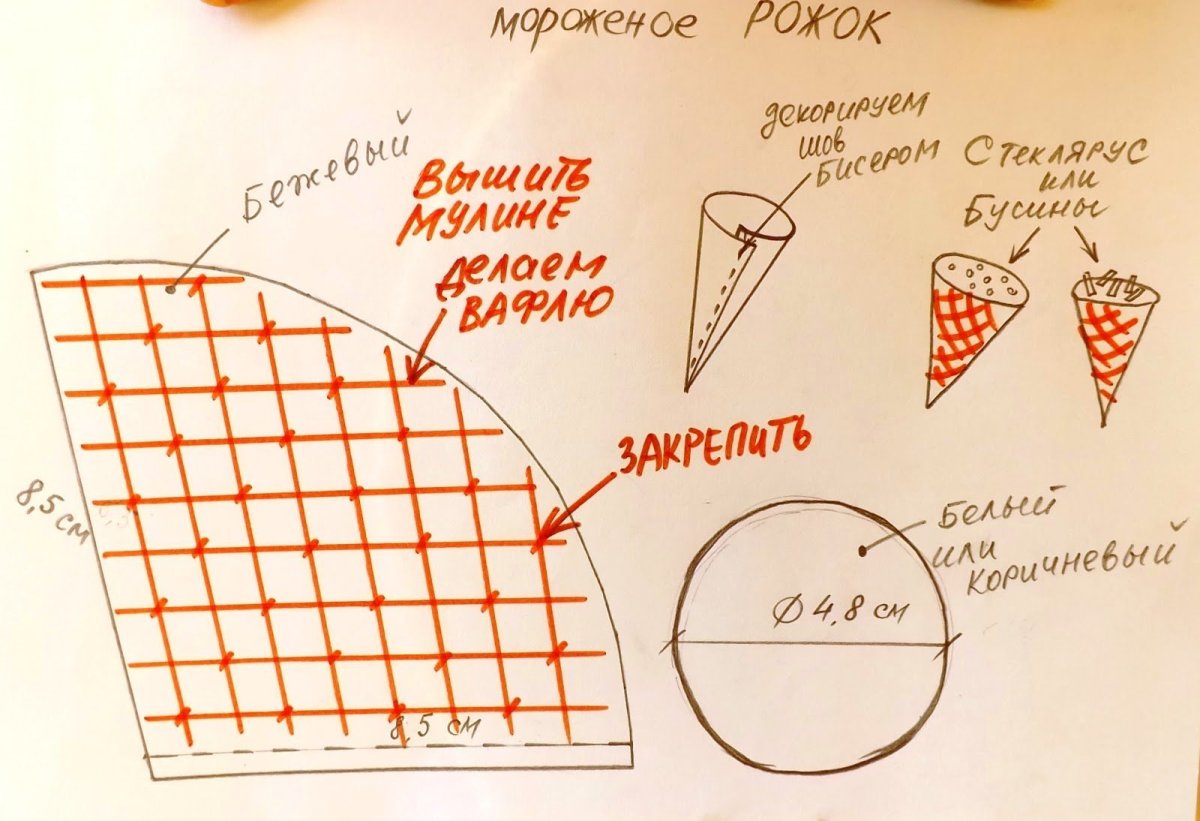 мороженое РОЖОК
Бежевый
ВЫШИТЬ
МУЛИНЕ
делаем
ВАФЛЮ
декорируем
шов
Бисером
Стеклярус
или
Бусины
ЗАКРЕПИТЬ
8,5 см
8,5 см
Белый
или
коричневый
Ø 4,8 см